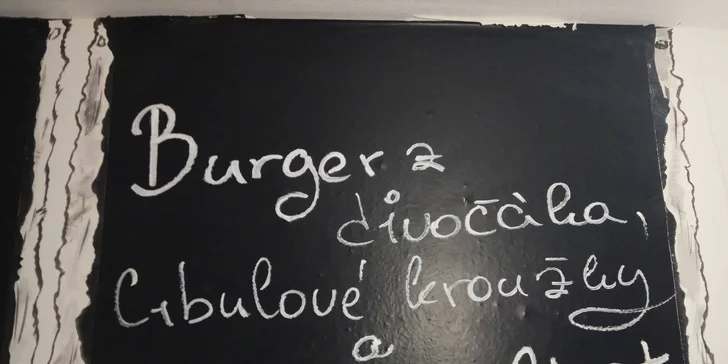 Burger z
divočáka,
Cibulové kroužky
a